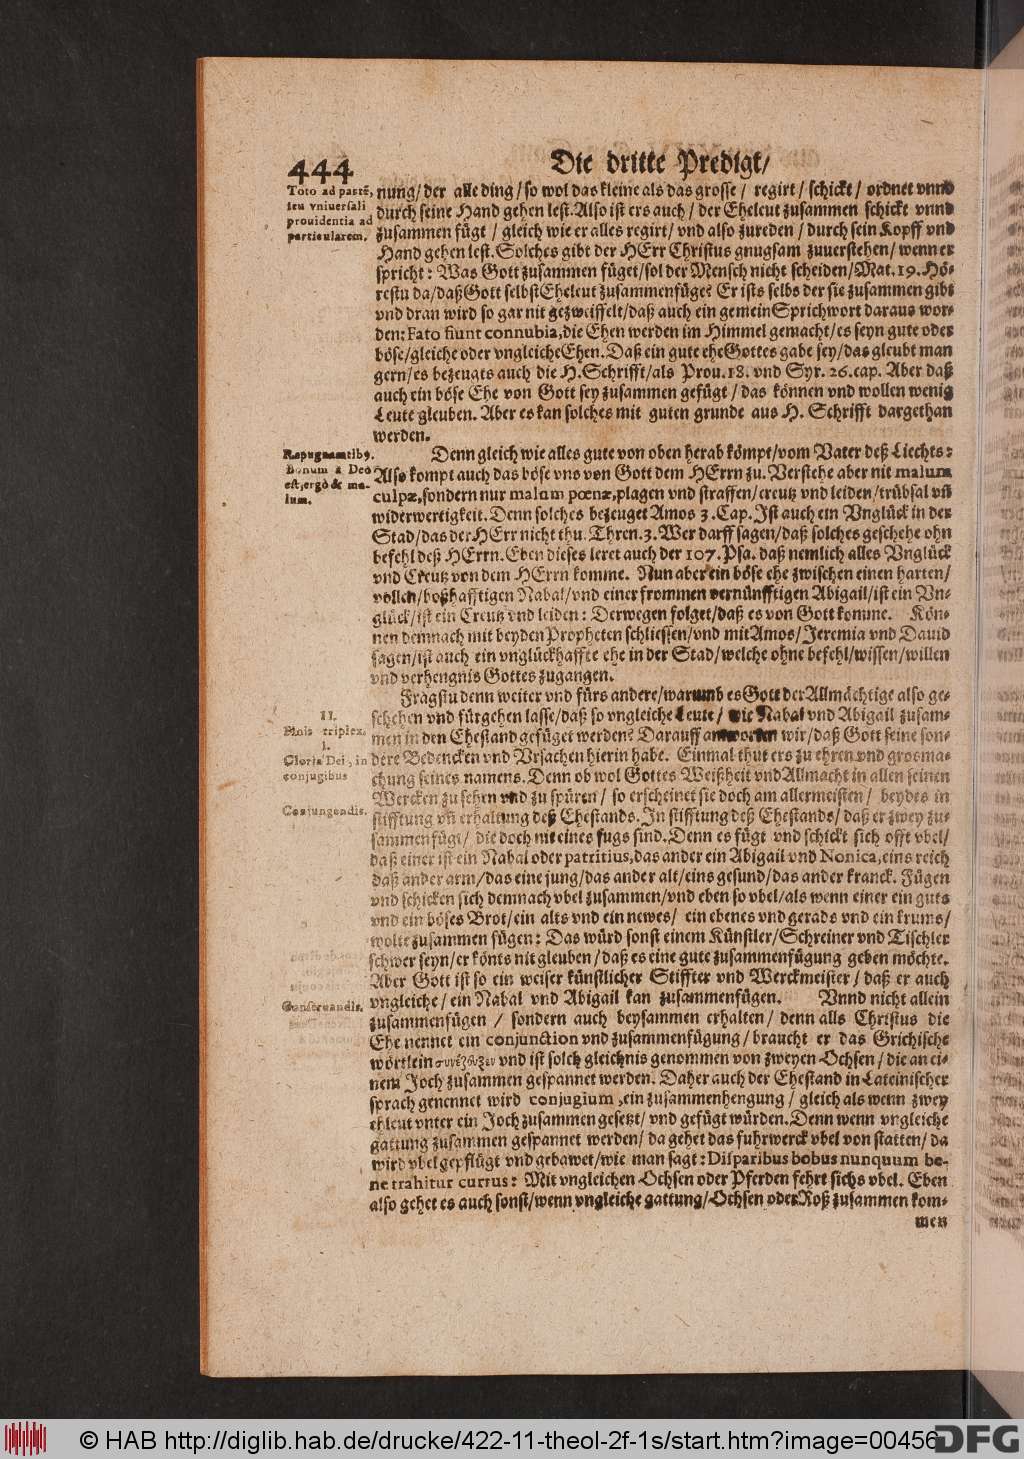 444 Die dritte Predigt/
Toto ad partē,
seu vniuersali
prouidentia ad
particularem.
nung/der alle ding/so wol das kleine als das grosse/ regirt/ schickt/ ordnet vnnd
durch seine Hand gehen lest. Also ist ers auch/ der Eheleut zusammen schickt vnnd
zusammen fügt/ gleich wie er alles regirt/ vnd also zureden/ durch sein Kopff vnd
Hand gehen lest. Solches gibt der HErr Christus gnugsam zuuerstehen/ wenn er
spricht: Was Gott zusammen füget/sol der Mensch nicht scheiden/Mat. 19. Hö-
restu da/daß Gott selbst Eheleut zusammenfüge? Er ists selbs der sie zusammen gibt
vnd dran wird so gar nit gezweiffelt/daß auch ein gemein Sprichwort daraus wor-
den: Fato fiunt connubia, die Ehen werden im Himmel gemacht/es seyn gute oder
böse/gleiche oder vngleiche Ehen. Daß ein gute ehe Gottes gabe sey/das gleubt man
gern/es bezeugts auch die H. Schrifft/als Prou. 18. vnd Syr. 26. cap. Aber daß
auch ein böse Ehe von Gott sey zusammen gefügt/das können vnd wollen wenig
Leute gleuben. Aber es kan solches mit guten grunde aus H. Schrifft dargethan
werden.
Repugnantibꝰ.
Bonum à Deo
est, ergò & ma-
lum.
Denn gleich wie alles gute von oben herab kömpt/vom Vater deß Liechts:
Also kompt auch das böse vns von Gott dem HErrn zu. Verstehe aber nit malum
culpæ, sondern nur malum pœnæ, plagen vnd straffen/creutz vnd leiden/trübsal vñ
widerwertigkeit. Denn solches bezeuget Amos 3. Cap. Ist auch ein Vnglück in der
Stad/das der HErr nicht thu. Thren. 3. Wer darff sagen/daß solches geschehe ohn
befehl deß HErrn. Eben dieses leret auch der 107. Psa. daß nemlich alles Vnglück
vnd Creutz von dem HErrn komme. Nun aber ein böse ehe zwischen einen harten/
vollen/boßhafftigen Nabal/vnd einer frommen vernünfftigen Abigail/ist ein Vn-
glück/ist ein Creutz vnd leiden: Derwegen folget/daß es von Gott komme. Kön-
nen demnach mit beyden Propheten schliessen/vnd mit Amos/Jeremia vnd Dauid
sagen/ist auch ein vnglückhaffte ehe in der Stad/welche ohne befehl/wissen/willen
vnd verhengnis Gottes zugangen.
II.
Finis triplex.
1.
Gloria Dei, in
conjugibus
Conjungendis.
Fragstu denn weiter vnd fürs andere/warumb es Gott der Allmächtige also ge-
schehen vnd fürgehen lasse/daß so vngleiche Leute/ wie Nabal vnd Abigail zusam-
men in den Ehestand gefüget werden? Darauff antworten wir/daß Gott seine son-
dere Bedencken vnd Vrsachen hierin habe. Einmal thut ers zu ehren vnd grosma-
chung seines namens. Denn ob wol Gottes Weißheit vnd Allmacht in allen seinen
Wercken zu sehen vnd zu spüren/ so erscheinet sie doch am allermeisten/ beydes in
stifftung vñ erhaltung deß Ehestands. In stifftung deß Ehestands/ daß er zwey zu-
sammenfügt/ die doch nit eines fugs sind. Denn es fügt vnd schickt sich offt vbel/
daß einer ist ein Nabal oder patritius, das ander ein Abigail vnd Nonica, eins reich
daß ander arm/das eine jung/das ander alt/eins gesund/das ander kranck. Fügen
vnd schicken sich demnach vbel zusammen/vnd eben so vbel/als wenn einer ein guts
vnd ein böses Brot/ein alts vnd ein newes/ ein ebenes vnd gerads vnd ein krums/
wolte zusammen fügen: Das würd sonst einem Künstler/Schreiner vnd Tischler
schwer seyn/er könts nit gleuben/daß es eine gute zusammenfügung geben möchte.
Aber Gott ist so ein weiser künstlicher Stiffter vnd Werckmeister/ daß er auch
vngleiche/ ein Nabal vnd Abigail kan zusammenfügen. Vnnd nicht allein
Conseruandis.
zusammenfügen/ sondern auch beysammen erhalten/ denn alls Christus die
Ehe nennet ein conjunction vnd zusammenfügung/ braucht er das Grichische
wörtlein συνέζευξεν vnd ist solch gleichnis genommen von zweyen Ochsen/die an ei-
nem Joch zusammen gespannet werden. Daher auch der Ehestand in Lateinischer
sprach genennet wird conjugium, ein zusammenhengung/ gleich als wenn zwey
eheleut vnter ein Joch zusammen gesetzt/ vnd gefügt würden. Denn wenn vngleiche
gattung zusammen gespannet werden/ da gehet das fuhrwerck vbel von statten/ da
wird vbel gepflügt vnd gebawet/wie man sagt: Disparibus bobus nunquum be-
ne trahitur currus: Mit vngleichen Ochsen oder Pferden fehrt sichs vbel. Eben
also gehet es auch sonst/wenn vngleiche gattung/Ochsen oder Roß zusammen kom-
men
© HAB http://diglib.hab.de/drucke/422-11-theol-2f-1s/start.htm?image=00456
DFG